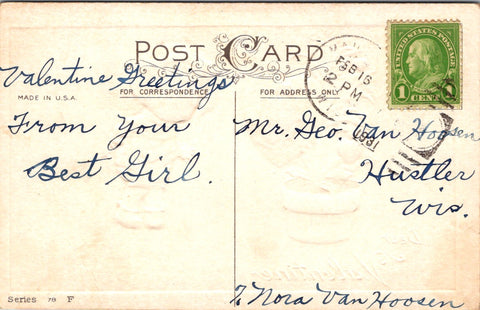 POST CARD
Valentine Greetings
MADE IN U.S.A.
FOR CORRESPONDENCE
FOR ADDRESS ONLY
FEB 16
2 PM
1931
UNITED STATES POSTAGE
1 CENT 1
From Your
Best Girl.
Mr. Geo. Van Hoosen
Hustler
Wis.
Series 70 F
Nora Van Hoosen